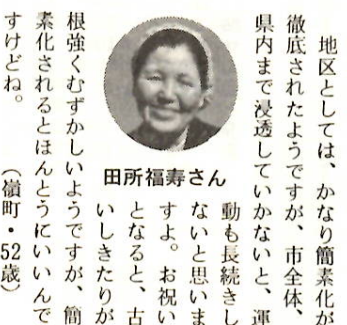 地区としては、かなり簡素化が
徹底されたようですが、市全体、
県内まで浸透していかないと、運
動も長続きし
ないと思いま
すよ。お祝い
となると、古
いしきたりが
根強くむずかしいようですが、簡
素化されるとほんとうにいいんで
すけどね。
（嶺町・52歳）
田所福寿さん